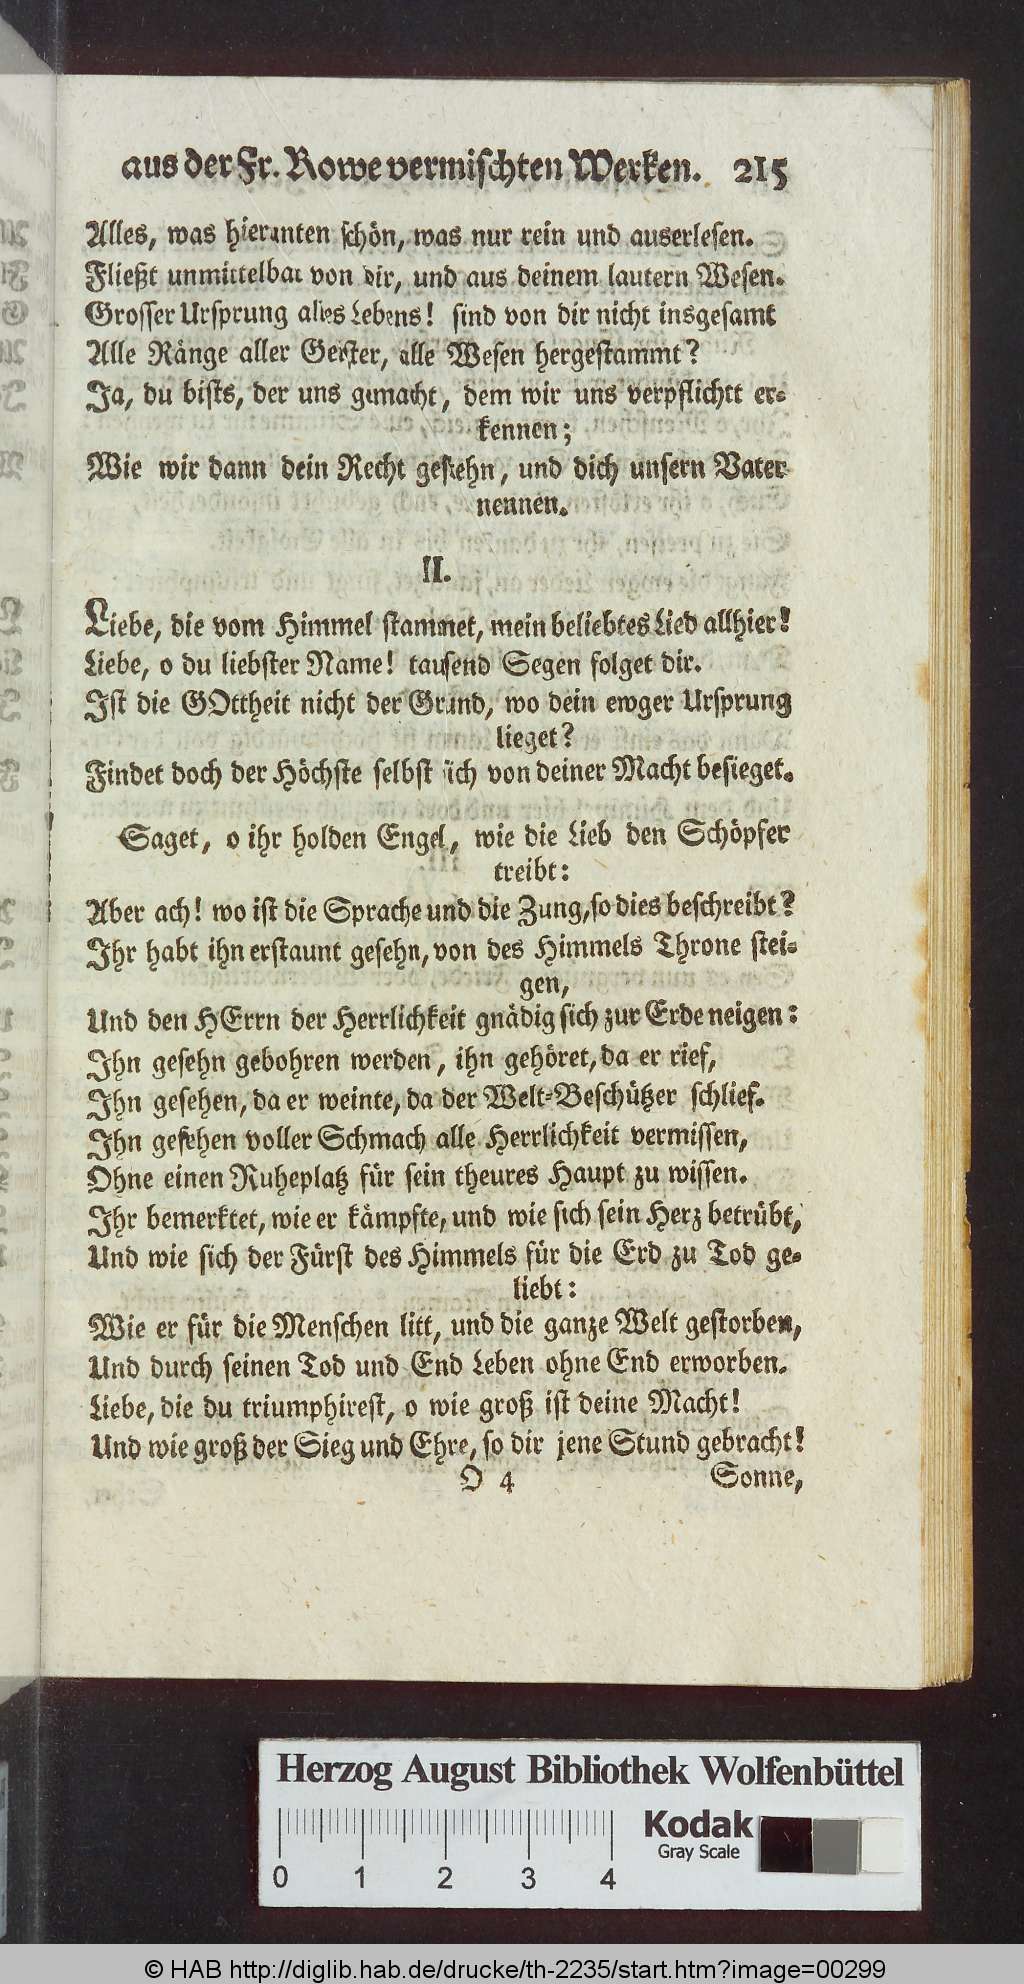 aus der Fr. Rowe vermischten Werken. 215
Alles, was hierunten schön, was nur rein und auserlesen.
Fließt unmittelbar von dir, und aus deinem lautern Wesen.
Grosser Ursprung alles Lebens! sind von dir nicht insgesamt
Alle Ränge aller Geister, alle Wesen hergestammt?
Ja, du bists, der uns gemacht, dem wir uns verpflichtt er-
kennen;
Wie wir dann dein Recht gestehn, und dich unsern Vater
nennen.
II.
Liebe, die vom Himmel stammet, mein beliebtes Lied allhier!
Liebe, o du liebster Name! tausend Segen folget dir.
Ist die GOttheit nicht der Grund, wo dein ewger Ursprung
lieget?
Findet doch der Höchste selbst sich von deiner Macht besieget.
Saget, o ihr holden Engel, wie die Lieb den Schöpfer
treibt:
Aber ach! wo ist die Sprache und die Zung, so dies beschreibt?
Ihr habt ihn erstaunt gesehn, von des Himmels Throne stei-
gen,
Und den HErrn der Herrlichkeit gnädig sich zur Erde neigen:
Ihn gesehn gebohren werden, ihn gehöret, da er rief,
Ihn gesehen, da er weinte, da der Welt-Beschützer schlief.
Ihn gesehen voller Schmach alle Herrlichkeit vermissen,
Ohne einen Ruheplatz für sein theures Haupt zu wissen.
Ihr bemerktet, wie er kämpfte, und wie sich sein Herz betrübt,
Und wie sich der Fürst des Himmels für die Erd zu Tod ge-
liebt:
Wie er für die Menschen litt, und die ganze Welt gestorben,
Und durch seinen Tod und End Leben ohne End erworben.
Liebe, die du triumphirest, o wie groß ist deine Macht!
Und wie groß der Sieg und Ehre, so dir jene Stund gebracht!
O 4 Sonne,
Herzog August Bibliothek Wolfenbüttel
Kodak
Gray Scale
0 1 2 3 4
© HAB http://diglib.hab.de/drucke/th-2235/start.htm?image=00299